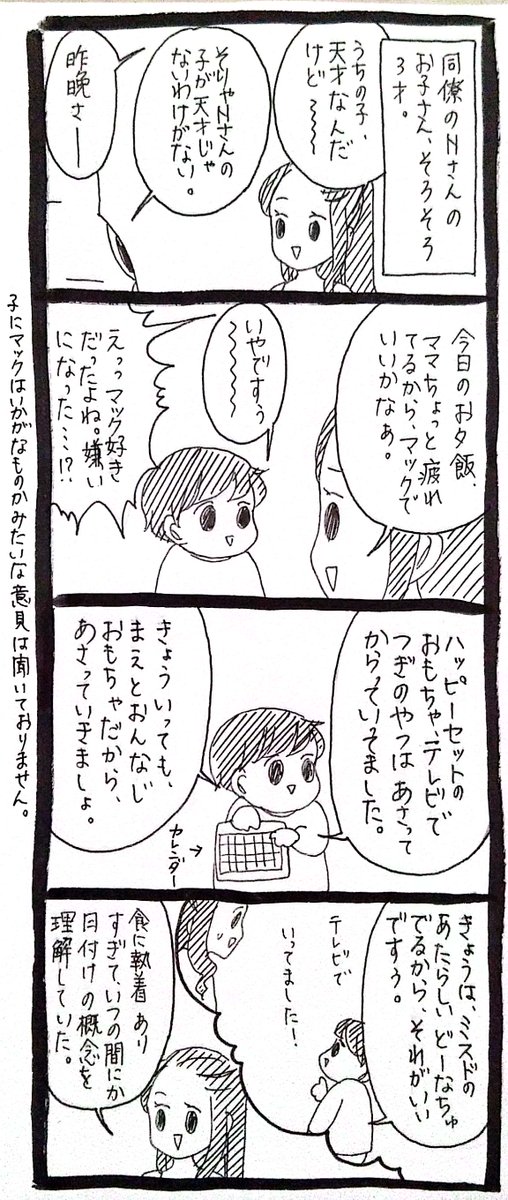 同僚のNさんの
お子さん、そろそろ
3才。
うちの子、
天才なんだ
けど〜〜〜
そりゃNさんの
子が天才じゃ
ないわけがない。
昨晩さー
今日のお夕飯、
ママちょっと疲れ
てるから、マックで
いいかなぁ。
いやですぅ
〜〜〜〜
えっっマック好き
だったよね。嫌い
になった…!?
ハッピーセットの
おもちゃ、テレビで
つぎのやつはあさって
からっていってました。
きょういっても、
まえとおんなじ
おもちゃだから、
あさっていきましょ。
カレンダー→
きょうは、ミスドの
あたらしいどーなちゅ
でるから、それがいい
ですぅ。
テレビで
いってました!
食に執着あり
すぎて、いつの間にか
日付けの概念を
理解していた。
子にマックはいかがなものかみたいな意見は聞いておりません。